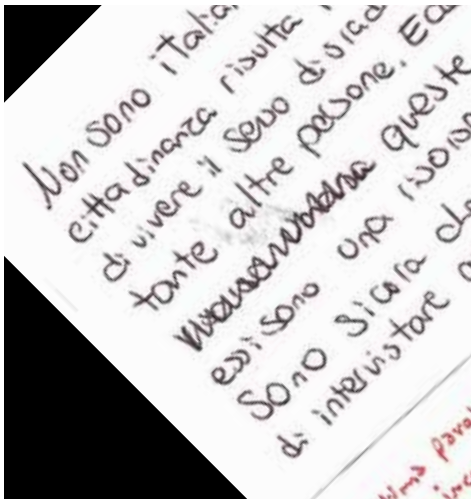 Non sono italia
cittadinanza risulta
di vivere il senso di sradi
tante altre persone. Ecc
queste
essi sono una risor
Sono sicura che
di intervistare